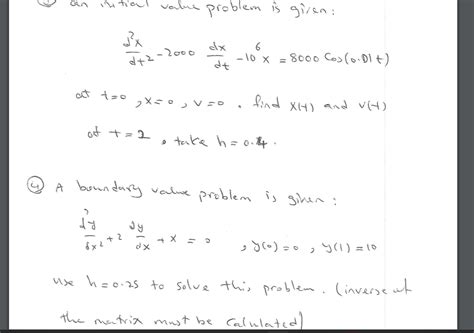 an initial value problem is given:
d²x/dt² - 2000 dx/dt - 10⁶ x = 8000 Cos(0.01t)
at t=0 , x=0 , v=0 . find x(t) and v(t)
at t=2 , take h=0.4.
④ A boundary value problem is given:
d²y/dx² + 2 dy/dx + x = 0 , y(0)=0 , y(1)=10
use h=0.25 to solve this problem. (inverse of
the matrix must be calculated)